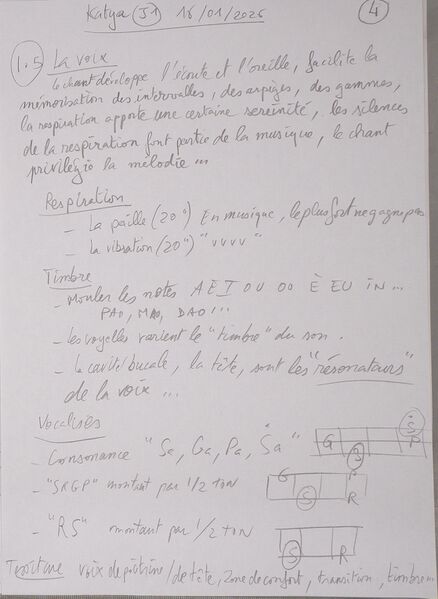 Katya (J1) 16/01/2026 (4)
1.5 La voix
le chant développe l'écoute et l'oreille, facilite la
mémorisation des intervalles, des arpèges, des gammes,
la respiration apporte une certaine sérénité, les silences
de la respiration font partie de la musique, le chant
privilégie la mélodie ...
Respiration
- La paille (20") En musique, le plus fort ne gagne pas
- la vibration (20") "vvvv"
Timbre
- Mouler les notes A E I OU OO È EU IN ...
PAO, MAO, DAO ...
- Les voyelles varient le "timbre" du son.
- la cavité bucale, la tête, sont les "résonateurs"
de la voix ...
Vocalises
- Consonance "Sa, Ga, Pa, Ṡa" G S Ṡ P
- "SRGP" montant par 1/2 ton G S P R
- "RS" montant par 1/2 ton S R
voix de poitrine / de tête, zone de confort, transition, timbre ...